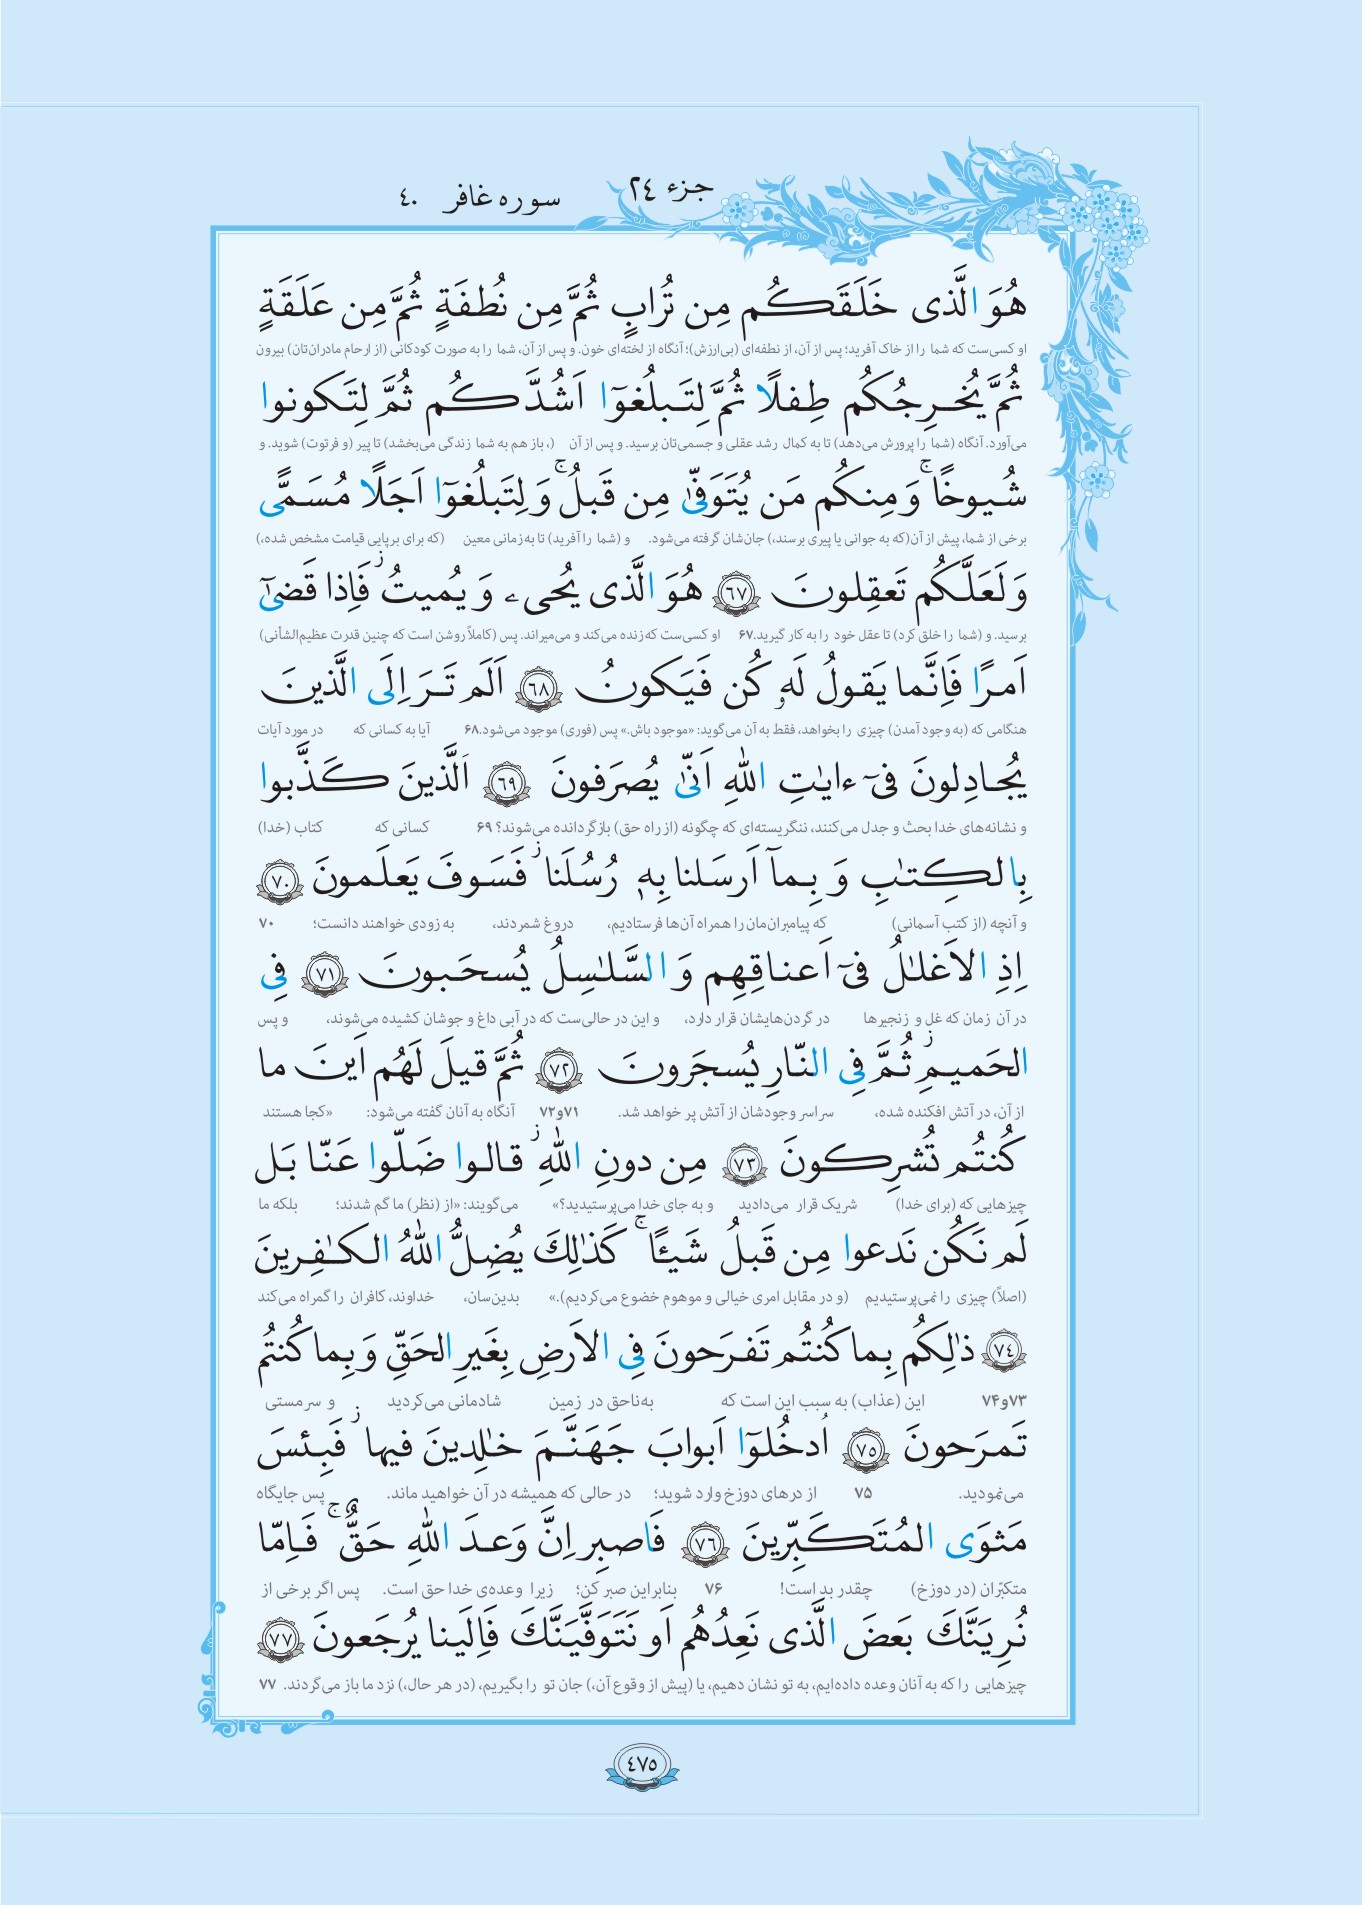 جزء ٢٤
سوره غافر ٤٠
هُوَ الَّذی خَلَقَکُم مِن تُرابٍ ثُمَّ مِن نُطفَةٍ ثُمَّ مِن عَلَقَةٍ
او کسی‌ست که شما را از خاک آفرید؛ پس از آن، از نطفه‌ای (بی‌ارزش)؛ آنگاه از لخته‌ای خون. و پس از آن، شما را به صورت کودکانی (از ارحام مادران‌تان) بیرون
ثُمَّ یُخرِجُکُم طِفلًا ثُمَّ لِتَبلُغوٓا اَشُدَّکُم ثُمَّ لِتَکونوا
می‌آورد. آنگاه (شما را پرورش می‌دهد) تا به کمال رشد عقلی و جسمی‌تان برسید. و پس از آن (، باز هم به شما زندگی می‌بخشد) تا پیر (و فرتوت) شوید. و
شُیوخًا ۚ وَ مِنکُم مَن یُتَوَفّیٰ مِن قَبلُ ۚ وَ لِتَبلُغوٓا اَجَلًا مُسَمًّی
برخی از شما، پیش از آن(که به جوانی یا پیری برسند،) جان‌شان گرفته می‌شود. و (شما را آفرید) تا به‌زمانی معین (که برای برپایی قیامت مشخص شده،)
وَ لَعَلَّکُم تَعقِلونَ ﴿٦٧﴾ هُوَ الَّذی یُحیۦ وَ یُمیتُ ۖ فَاِذا قَضیٰٓ
برسید. و (شما را خلق کرد) تا عقل خود را به کار گیرید.۶۷ او کسی‌ست که زنده می‌کند و می‌میراند. پس (کاملاً روشن است که چنین قدرت عظیم‌الشأنی)
اَمرًا فَاِنَّما یَقولُ لَهٗ کُن فَیَکونُ ﴿٦٨﴾ اَلَم تَرَ اِلَی الَّذینَ
هنگامی که (به وجود آمدن) چیزی را بخواهد، فقط به آن می‌گوید: «موجود باش.» پس (فوری) موجود می‌شود.۶۸ آیا به کسانی که در مورد آیات
یُجادِلونَ فیٓ ءایٰتِ اللّٰهِ اَنّیٰ یُصرَفونَ ﴿٦٩﴾ اَلَّذینَ کَذَّبوا
و نشانه‌های خدا بحث و جدل می‌کنند، ننگریسته‌ای که چگونه (از راه حق) بازگردانده می‌شوند؟ ۶۹ کسانی که کتاب (خدا)
بِالکِتٰبِ وَ بِمآ اَرسَلنا بِهٖ رُسُلَنا ۖ فَسَوفَ یَعلَمونَ ﴿٧٠﴾
و آنچه (از کتب آسمانی) که پیامبران‌مان را همراه آن‌ها فرستادیم، دروغ شمردند، به زودی خواهند دانست؛ ۷۰
اِذِ الاَغلٰلُ فیٓ اَعناقِهِم وَ السَّلٰسِلُ یُسحَبونَ ﴿٧١﴾ فِی
در آن زمان که غل و زنجیرها در گردن‌هایشان قرار دارد، و این در حالی‌ست که در آبی داغ و جوشان کشیده می‌شوند، و پس
الحَمیمِ ۖ ثُمَّ فِی النّارِ یُسجَرونَ ﴿٧٢﴾ ثُمَّ قیلَ لَهُم اَینَ ما
از آن، در آتش افکنده شده، سراسر وجودشان از آتش پر خواهد شد. ۷۱و۷۲ آنگاه به آنان گفته می‌شود: «کجا هستند
کُنتُم تُشرِکونَ ﴿٧٣﴾ مِن دونِ اللّٰهِ ۖ قالوا ضَلّوا عَنّا بَل
چیزهایی که (برای خدا) شریک قرار می‌دادید و به جای خدا می‌پرستیدید؟» می‌گویند: «از (نظر) ما گم شدند؛ بلکه ما
لَم نَکُن نَدعوا مِن قَبلُ شَیـًٔا ۚ کَذٰلِکَ یُضِلُّ اللّٰهُ الکٰفِرینَ
(اصلاً) چیزی را نمی‌پرستیدیم (و در مقابل امری خیالی و موهوم خضوع می‌کردیم).» بدین‌سان، خداوند، کافران را گمراه می‌کند
﴿٧٤﴾ ذٰلِکُم بِما کُنتُم تَفرَحونَ فِی الاَرضِ بِغَیرِ الحَقِّ وَ بِما کُنتُم
۷۳و۷۴ این (عذاب) به سبب این است که به‌ناحق در زمین شادمانی می‌کردید و سرمستی
تَمرَحونَ ﴿٧٥﴾ اُدخُلوٓا اَبوابَ جَهَنَّمَ خٰلِدینَ فیها ۖ فَبِئسَ
می‌نمودید. ۷۵ از درهای دوزخ وارد شوید؛ در حالی که همیشه در آن خواهید ماند. پس جایگاه
مَثوَی المُتَکَبِّرینَ ﴿٧٦﴾ فَاصبِر اِنَّ وَعدَ اللّٰهِ حَقٌّ ۚ فَاِمّا
متکبّران (در دوزخ) چقدر بد است! ۷۶ بنابراین صبر کن؛ زیرا وعده‌ی خدا حق است. پس اگر برخی از
نُرِیَنَّکَ بَعضَ الَّذی نَعِدُهُم اَو نَتَوَفَّیَنَّکَ فَاِلَینا یُرجَعونَ ﴿٧٧﴾
چیزهایی را که به آنان وعده داده‌ایم، به تو نشان دهیم، یا (پیش از وقوع آن،) جان تو را بگیریم، (در هر حال،) نزد ما باز می‌گردند. ۷۷
٤٧٥